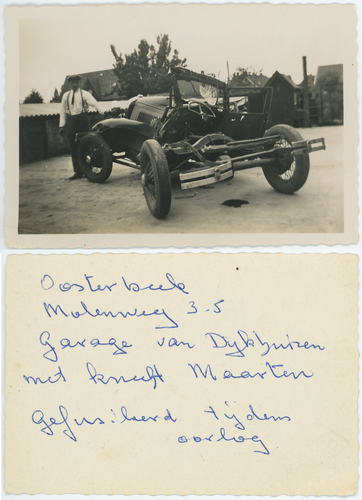 Oosterbeek
Molenweg 3-5
Garage van Dijkhuizen
met knecht Maarten
Gefusileerd tijdens
oorlog